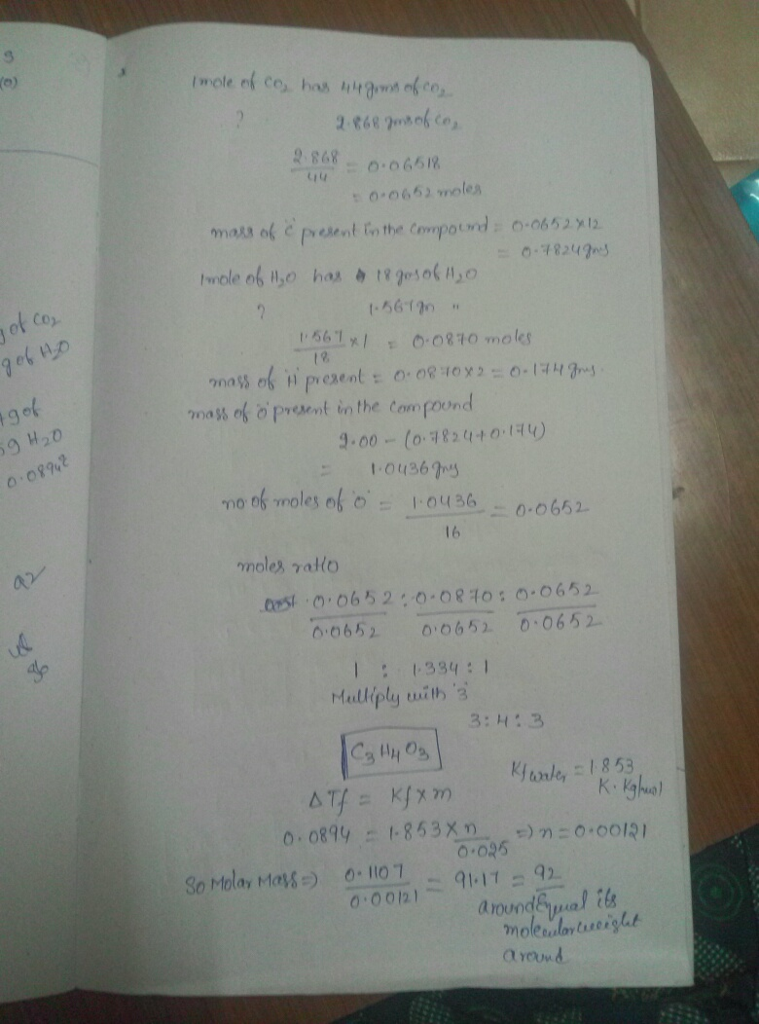 3
(0)
g of CO2
g of H2O
g of
5g H2O
0.0894
1mole of CO2 has 44gms of CO2
? 2.868 gms of CO2
2.868
44
= 0.06518
= 0.0652 moles
mass of 'C' present in the compound = 0.0652×12
= 0.7824gms
1mole of H2O has 18 gms of H2O
? 1.567gm "
1.567
18
×1 = 0.0870 moles
mass of 'H' present = 0.0870×2 = 0.174gms.
mass of 'O' present in the compound
2.00 - (0.7824+0.174)
= 1.0436gms
no. of moles of 'O' = 1.0436 = 0.0652
16
moles ratio
0.0652 : 0.0870 : 0.0652
0.0652 0.0652 0.0652
1 : 1.334 : 1
Multiply with '3'
3:4:3
C3H4O3
Kf water = 1.853
K. Kg/mol
ΔTf = Kf×m
0.0894 = 1.853×n => n = 0.00121
0.025
So Molar Mass => 0.1107 = 91.17 = 92
0.00121
around Equal its
molecular weight
around